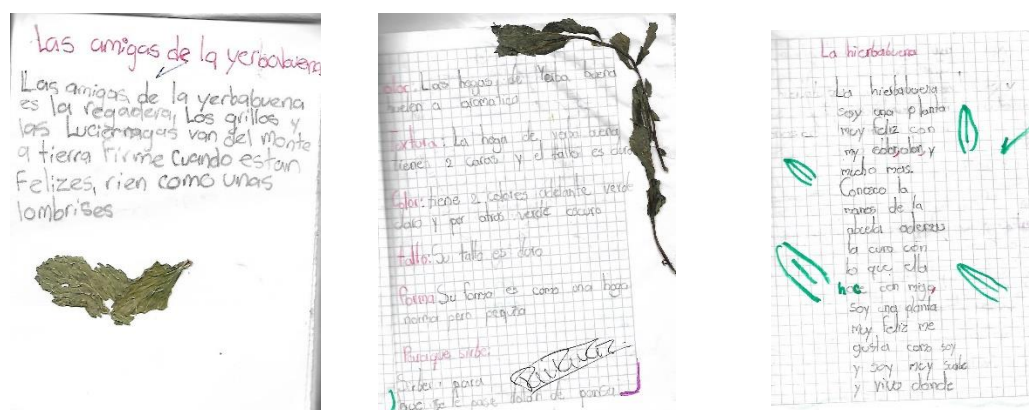 Las amigas de la yerbabuena
Las amigas de la yerbabuena
es la regadera, Los grillos y
las Luciernagas van del monte
a tierra firme cuando estan
Felizes, rien como unas
lombrises
olor: Las hogas de Yerba buena
huelen a aromatico
Textura: La hoga de yerba buena
tiene 2 caras y el tallo es duro
Color: tiene 2 colores adelante verde
claro y por atras verde oscuro
tallo: Su tallo es duro
Forma Su forma es como una hoga
norma pero pequña
Paraque sirbe:
Sirbe: para
que se le pase dolor de pansa
La hierbabuena
La hierbabuena
Soy una planta
muy feliz con
my color, olor, y
mucho mas.
Conosco la
manos de la
abuela ademas
la curo con
lo que ella
hace con migo,
soy una planta
muy feliz me
gusta como soy
y soy muy
y vivo donde